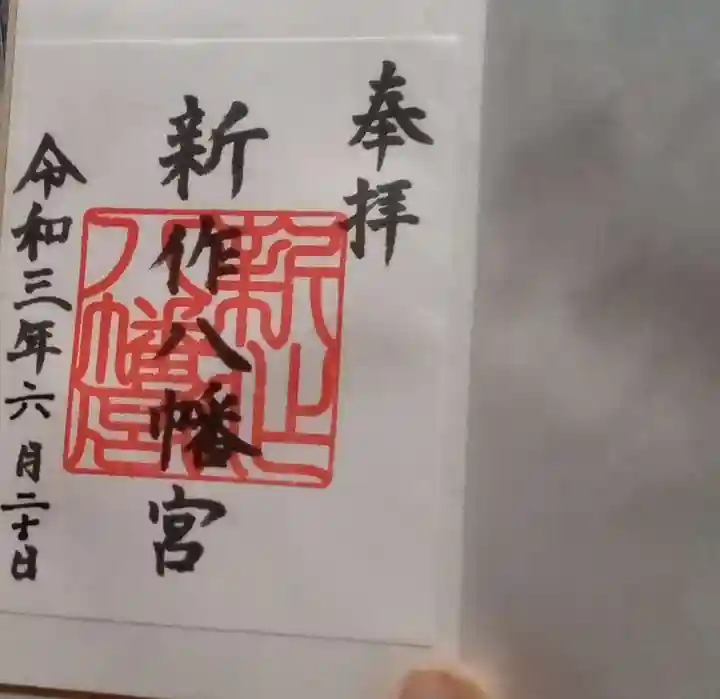 奉拝
新作八幡宮
令和三年六月二十日